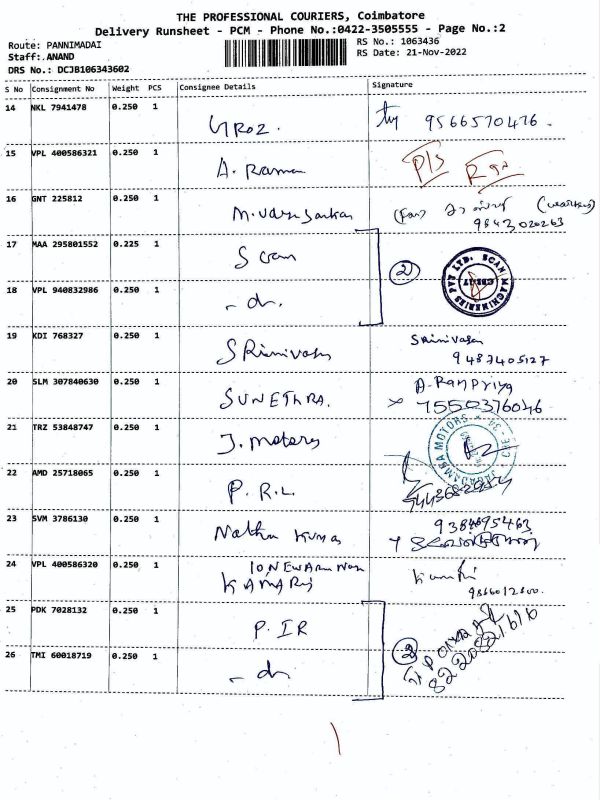 THE PROFESSIONAL COURIERS, Coimbatore
Delivery Runsheet - PCM - Phone No.:0422-3505555 - Page No.:2
Route: PANNIMADAI
RS No.: 1063436
Staff:.ANAND
RS Date: 21-Nov-2022
DRS No.: DCJB106343602
S No Consignment No Weight PCS Consignee Details Signature
14 NKL 7941478 0.250 1 9566570476.
15 VPL 400586321 0.250 1 A. Raman P/S
16 GNT 225812 0.250 1 9843020263
17 MAA 295801552 0.225 1 Scan 2
SCAN MACHINERIES PVT LTD.
18 VPL 940832986 0.250 1 - do.
19 KDI 768327 0.250 1 SRinivasan Srinivasan
9487405127
20 SLM 307840630 0.250 1 SUNETHRA. A. RamPriya
7550376046
21 TRZ 53848747 0.250 1 J. motors
JAGADAMBA MOTORS CBE-34
22 AMD 25718065 0.250 1 P.R.L.
23 SVM 3786130 0.250 1 Nathu Kumar
24 VPL 400586320 0.250 1
25 PDK 7028132 0.250 1 P. IR 2
26 TMI 60018719 0.250 1 - do